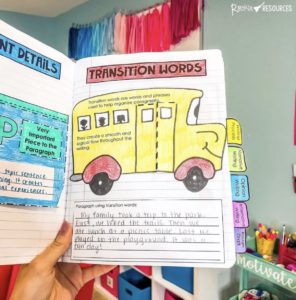 RESOURCES
NT DETAILS
TRANSITION WORDS
Transition words are words and phrases
used to help organize paragraphs.
They create a smooth and
logical flow throughout the
writing.
P
Very
Important
Piece to the
Paragraph
topic sentence
It creates
experiences.
Paragraph using transition words:
My family took a trip to the park.
First, we hiked the trails. Then we
ate lunch at a picnic table. Last we
played on the playground. It was a
fun day!
motivate